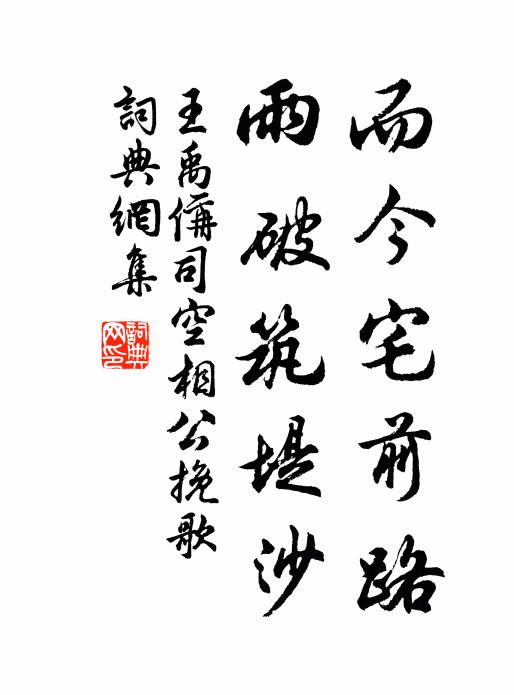 而今宅前路
雨破筑堤沙
王禹偁司空相公挽歌
詞典網集
詞典
網印